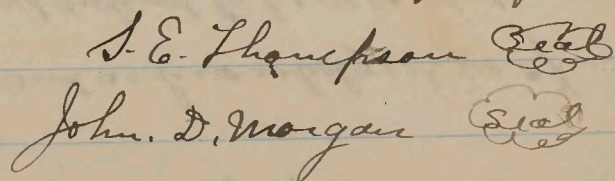 S. E. Thompson Seal
John. D. Morgan Seal